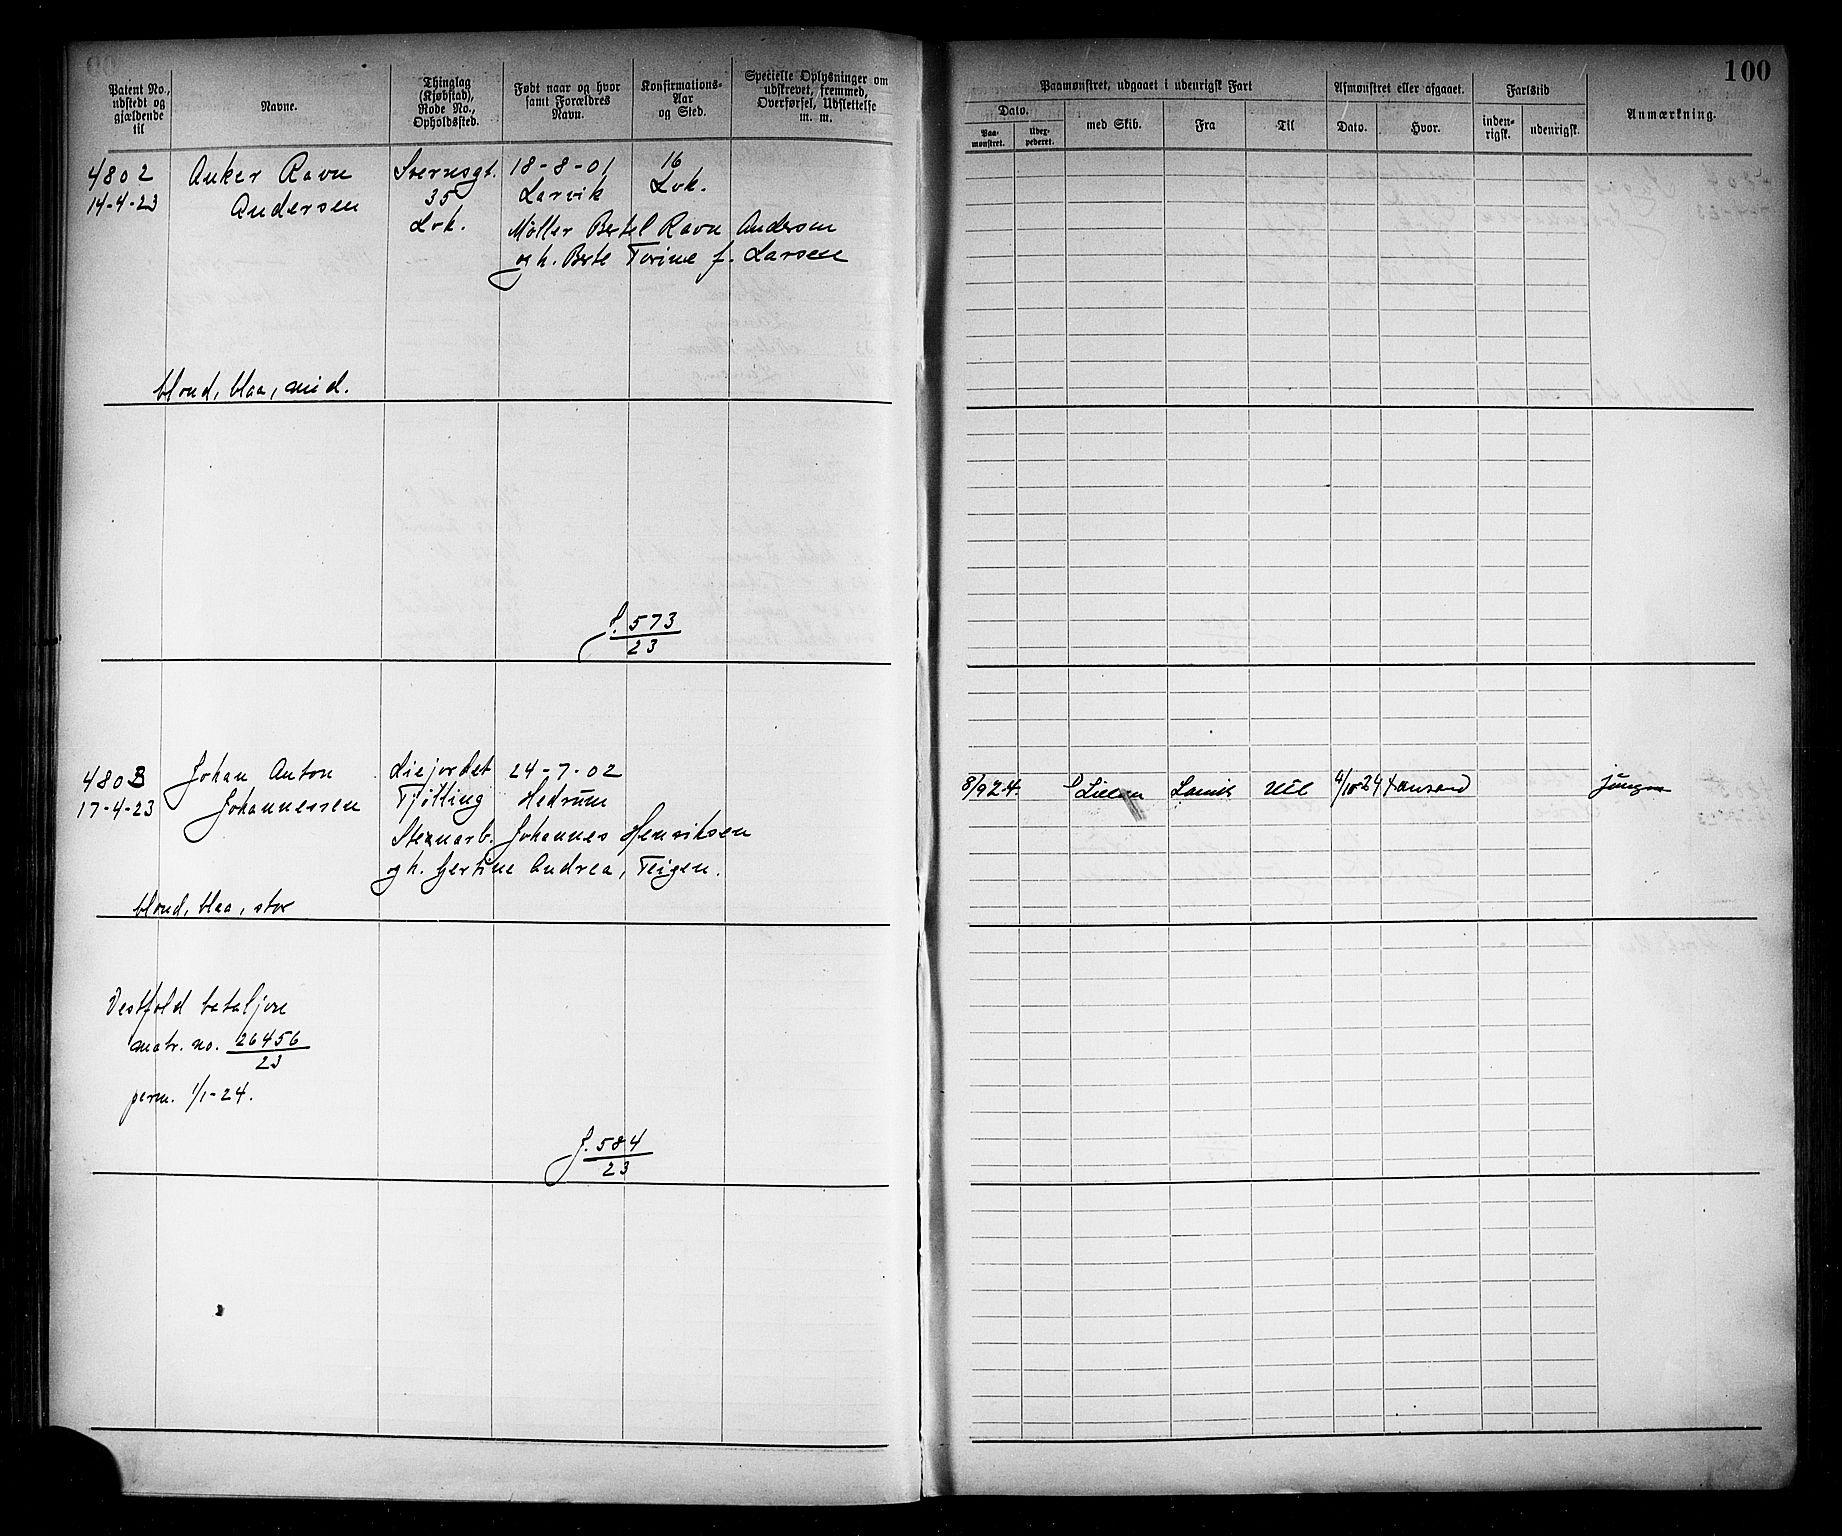 100
Patent No., udstedt og gjældende til
Navne.
Thinglag (Kjøbstad), Rode No., Opholdssted.
Født naar og hvor samt Forældres Navn.
Konfirmations-Aar og Sted.
Specielle Oplysninger om udskrevet, fremmed, Overførsel, Udslettelse m. m.
Paamønstret, udgaaet i udenrigsk Fart
Dato.
Paa-mønstret.
Udex-pederet.
med Skib.
Fra
Til
Afmønstret eller afgaaet.
Dato.
Hvor.
Fartstid
inden-rigsk.
udenrigsk.
Anmærkning.
4802 Anker Ravn 18-8-01 16
14-4-23 Andersen 35 Larvik Lvk.
Lvk. Møller Bertel Ravn Andersen
og h. Berte Torine f. Larsen
blond, blaa, mid.
J. 573
23
4803 Johan Anton Liejordet 24-7-02
17-4-23 Johannessen Tjølling Hedrum
Stenarb. Johannes Henriksen
og h. Gertine Andrea, Teigen.
8/9 24. Larvik 4/10-24
blond, blaa, stor
Vestfold bataljon
matr. no. 26456
23
perm. 1/1-24.
J. 584
23